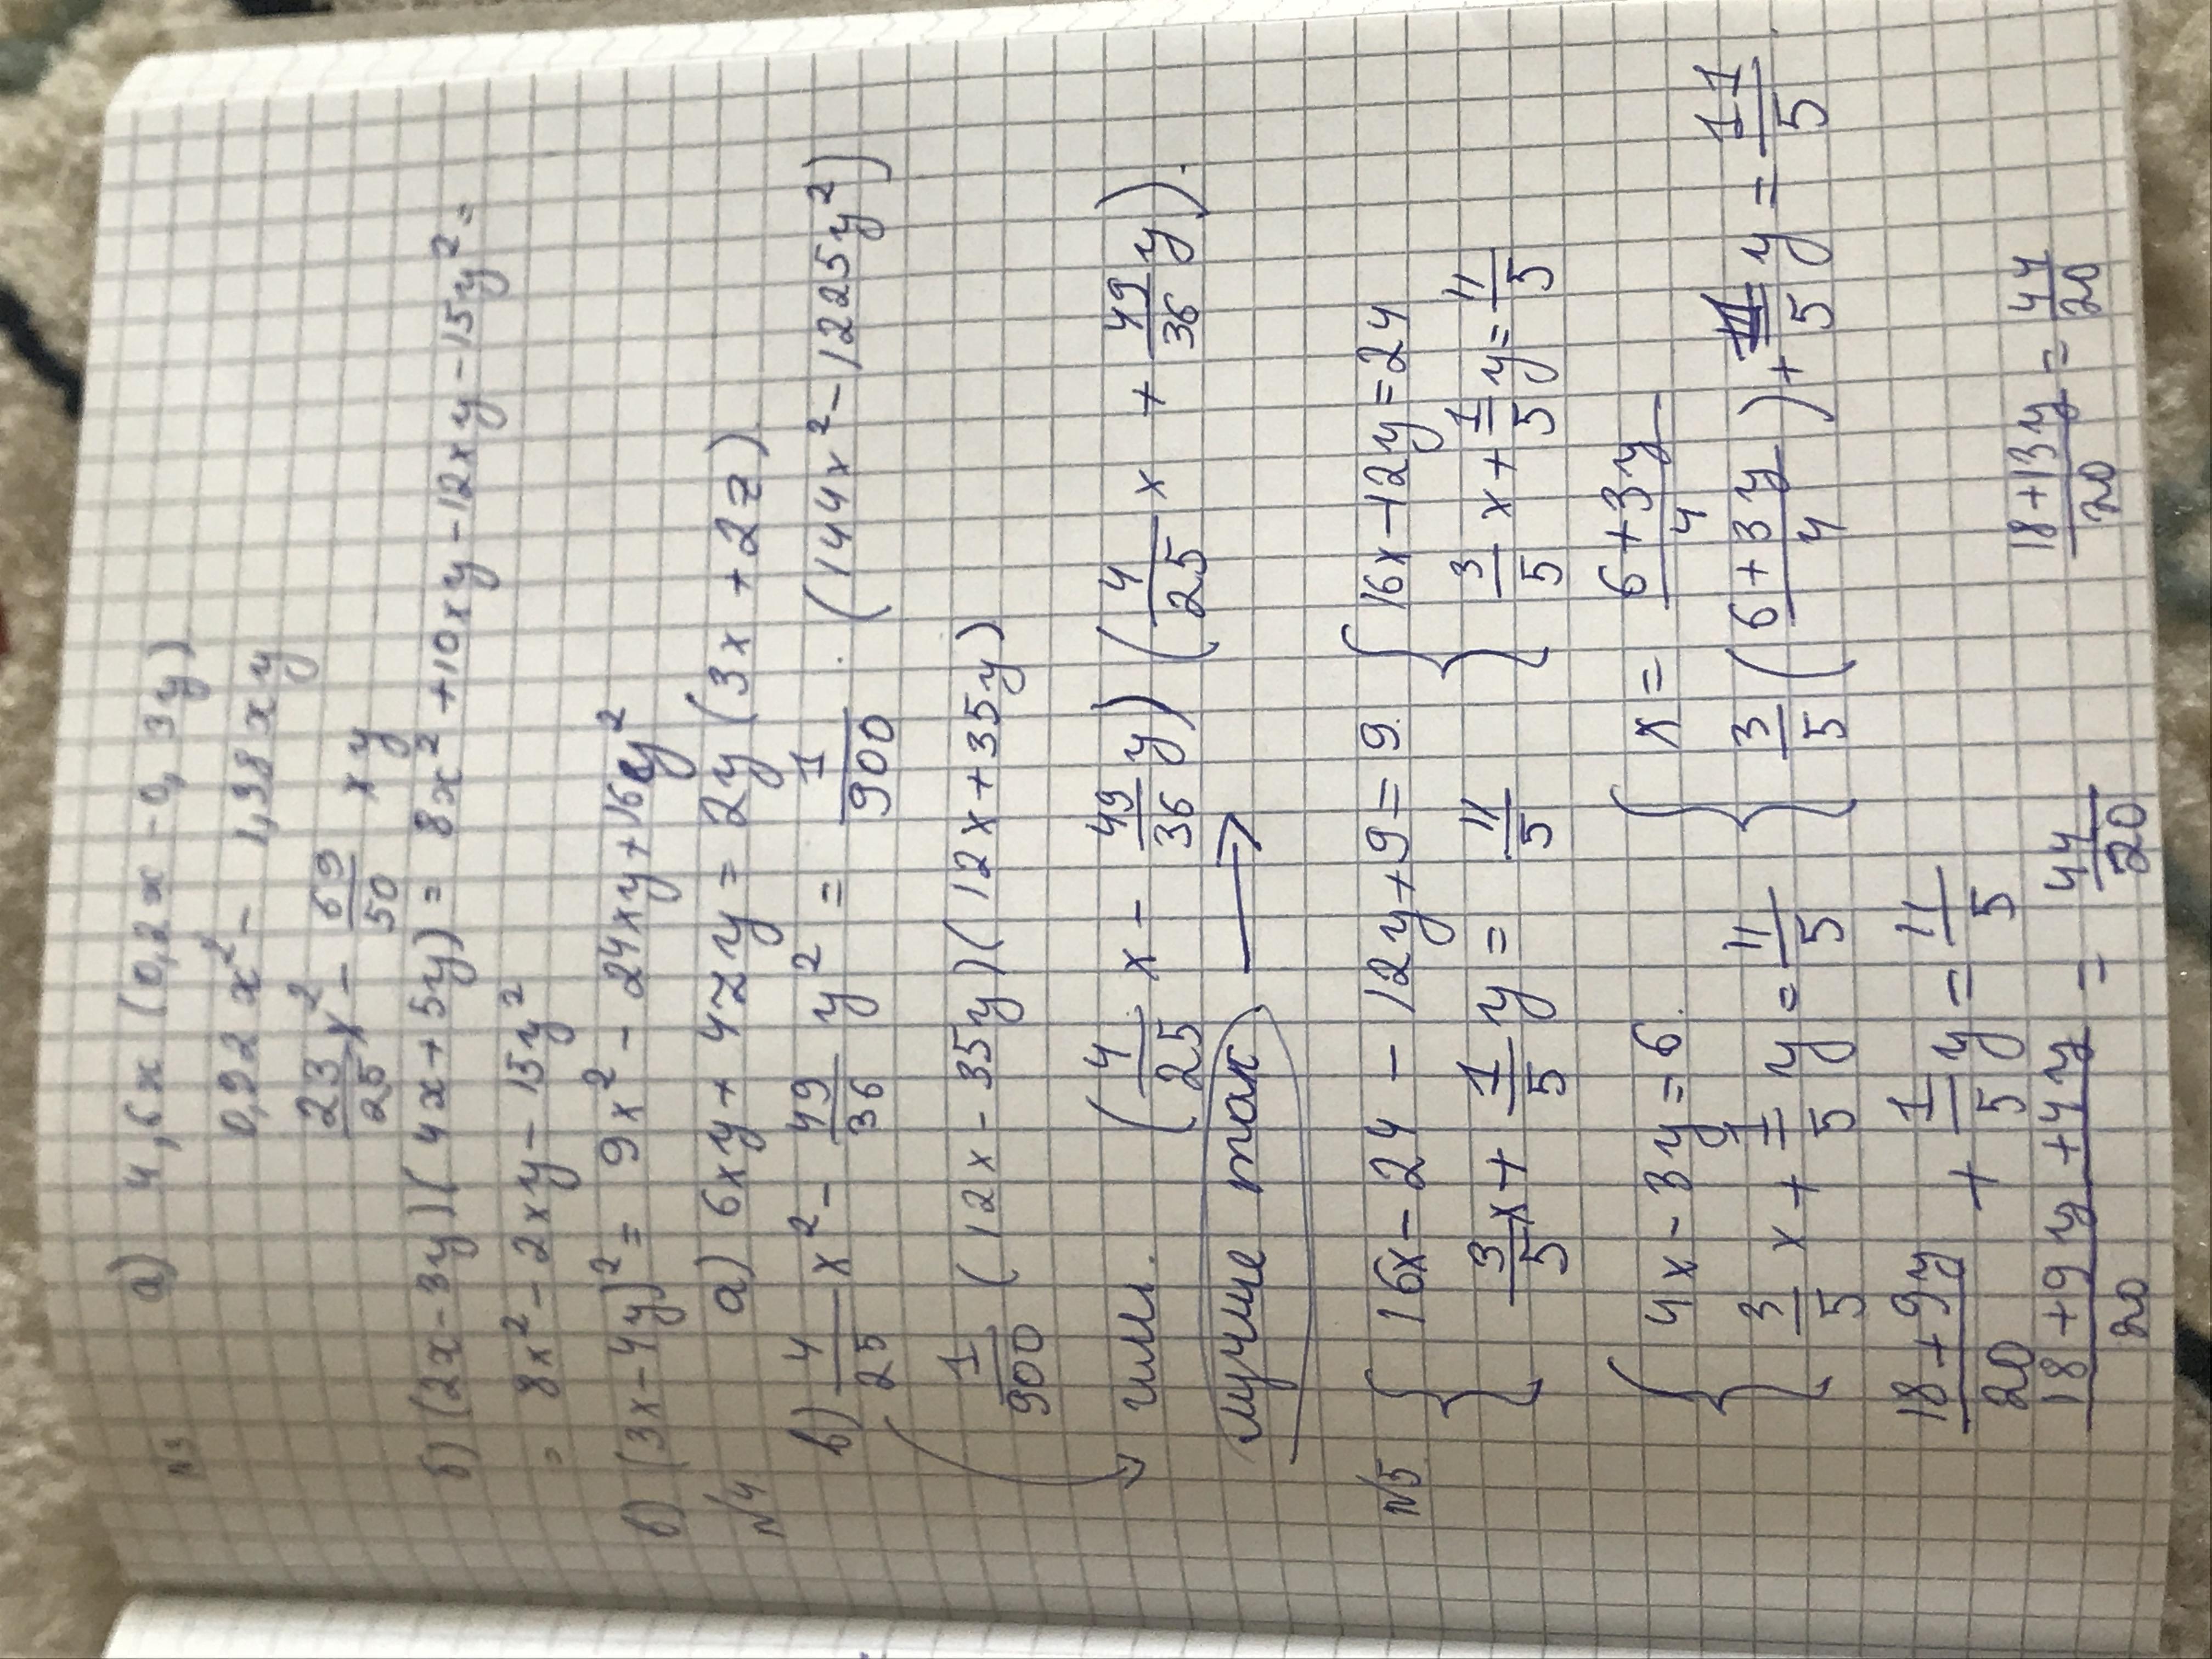 №3 а) 4,6x (0,2x - 0,3y)
0,92x² - 1,38xy
23/25 x² - 69/50 xy
б) (2x - 3y)(4x + 5y) = 8x² + 10xy - 12xy - 15y² =
= 8x² - 2xy - 15y²
в) (3x - 4y)² = 9x² - 24xy + 16y²
№4 а) 6xy + 4zy = 2y (3x + 2z)
в) 4/25 x² - 49/36 y² = 1/900 · (144x² - 1225y²)
1/900 (12x - 35y)(12x + 35y)
или. (4/25 x - 49/36 y) (4/25 x + 49/36 y).
лучше так →
№5 { 16x - 24 - 12y + 9 = 9. { 16x - 12y = 24
3/5 x + 1/5 y = 11/5 3/5 x + 1/5 y = 11/5
{ 4x - 3y = 6. { x = 6 + 3y / 4
3/5 x + 1/5 y = 11/5 3/5 (6 + 3y / 4) + 1/5 y = 11/5
18 + 9y / 20 + 1/5 y = 11/5
18 + 9y + 4y / 20 = 44/20 18 + 13y / 20 = 44/20